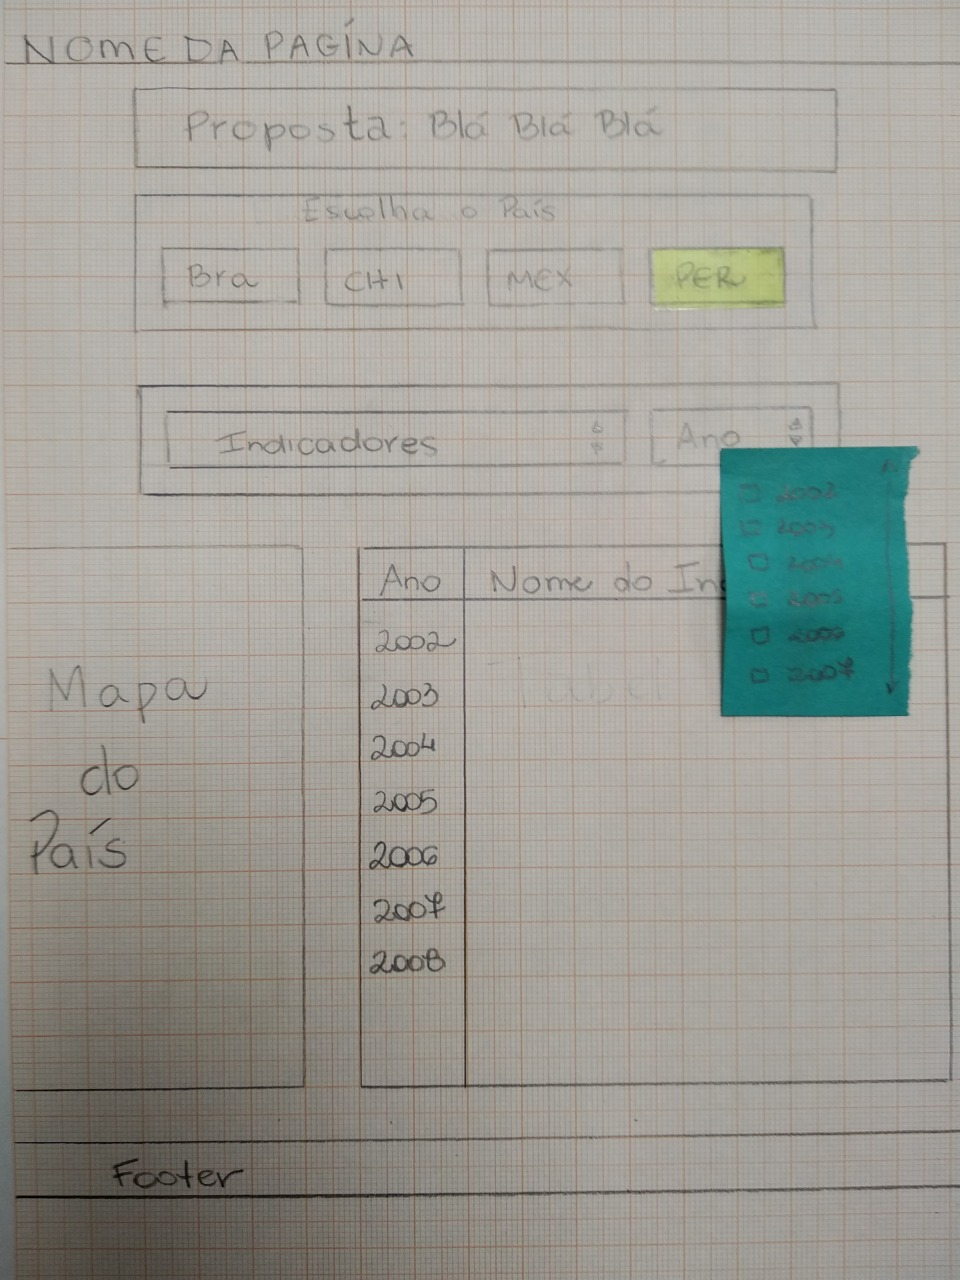 NOME DA PAGÍNA
Proposta: Blá Blá Blá
Escolha o País
Bra CHI MEX PER
Indicadores Ano
2002
2003
2004
2005
2006
2007
Ano Nome do In
2002
2003
2004
2005
2006
2007
2008
Mapa
do
País
Footer